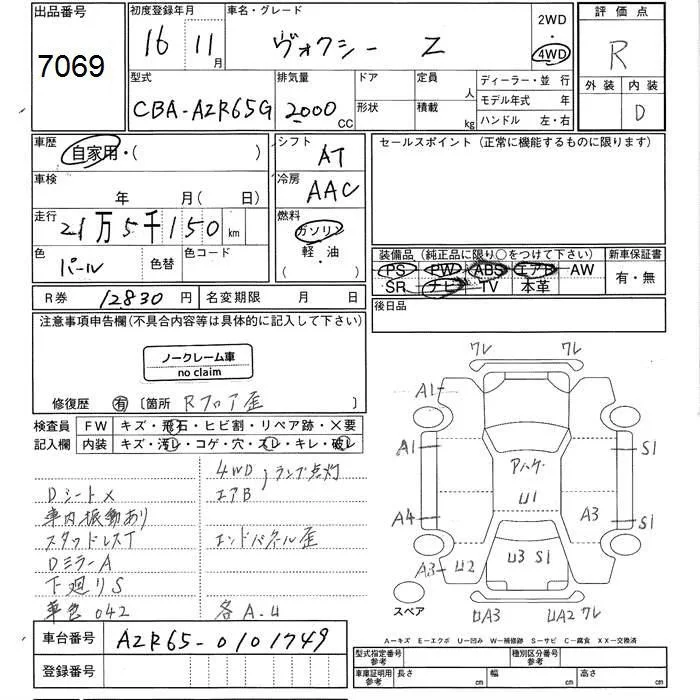 出品番号
7069
初度登録年月
16 11月
車名・グレード
ヴォクシー Z
2WD
・
4WD
評価点
R
外装 内装
D
型式
CBA-AZR65G
排気量
2000 CC
ドア
形状
定員 人
積載 kg
ディーラー・並 行
モデル年式 年
ハンドル 左・右
車歴
自家用・( )
シフト
AT
セールスポイント (正常に機能するものに限ります)
車検
年 月( 日)
冷房
AAC
走行
21万5千150 km
燃料
ガソリン
軽・油
( )
色
パール
色替
色コード
装備品 (純正品に限り○をつけて下さい)
PS PW ABS エアB AW
SR ナビ TV 本革
新車保証書
有・無
R券 12830 円
名変期限 月 日
後日品
注意事項申告欄(不具合内容等は具体的に記入して下さい)
ノークレーム車
no claim
修復歴 有 〔箇所 Rフロア歪 〕
検査員
記入欄
FW キズ・飛石・ヒビ割・リペア跡・×要
内装 キズ・汚レ・コゲ・穴・スレ・キレ・破レ
4WD
エアB
ランプ点灯
Dシート×
車内振動あり
スタッドレスT
エンドパネル歪
DミラーA
下廻りS
車色 042
各A.U
ワレ ワレ
A1
A1
S1
アハゲ
U1
A4
A3
S1
A3
U2
U3 S1
スペア
UA3
UA2 ワレ
A―キズ E―エクボ U―凹み W―補修跡 S―サビ C―腐食 XX―交換済
車台番号
AZR65-0101749
登録番号
型式指定番号
参考
種別区分番号
参考
車庫証明用
参考
長さ cm
幅 cm
高さ cm